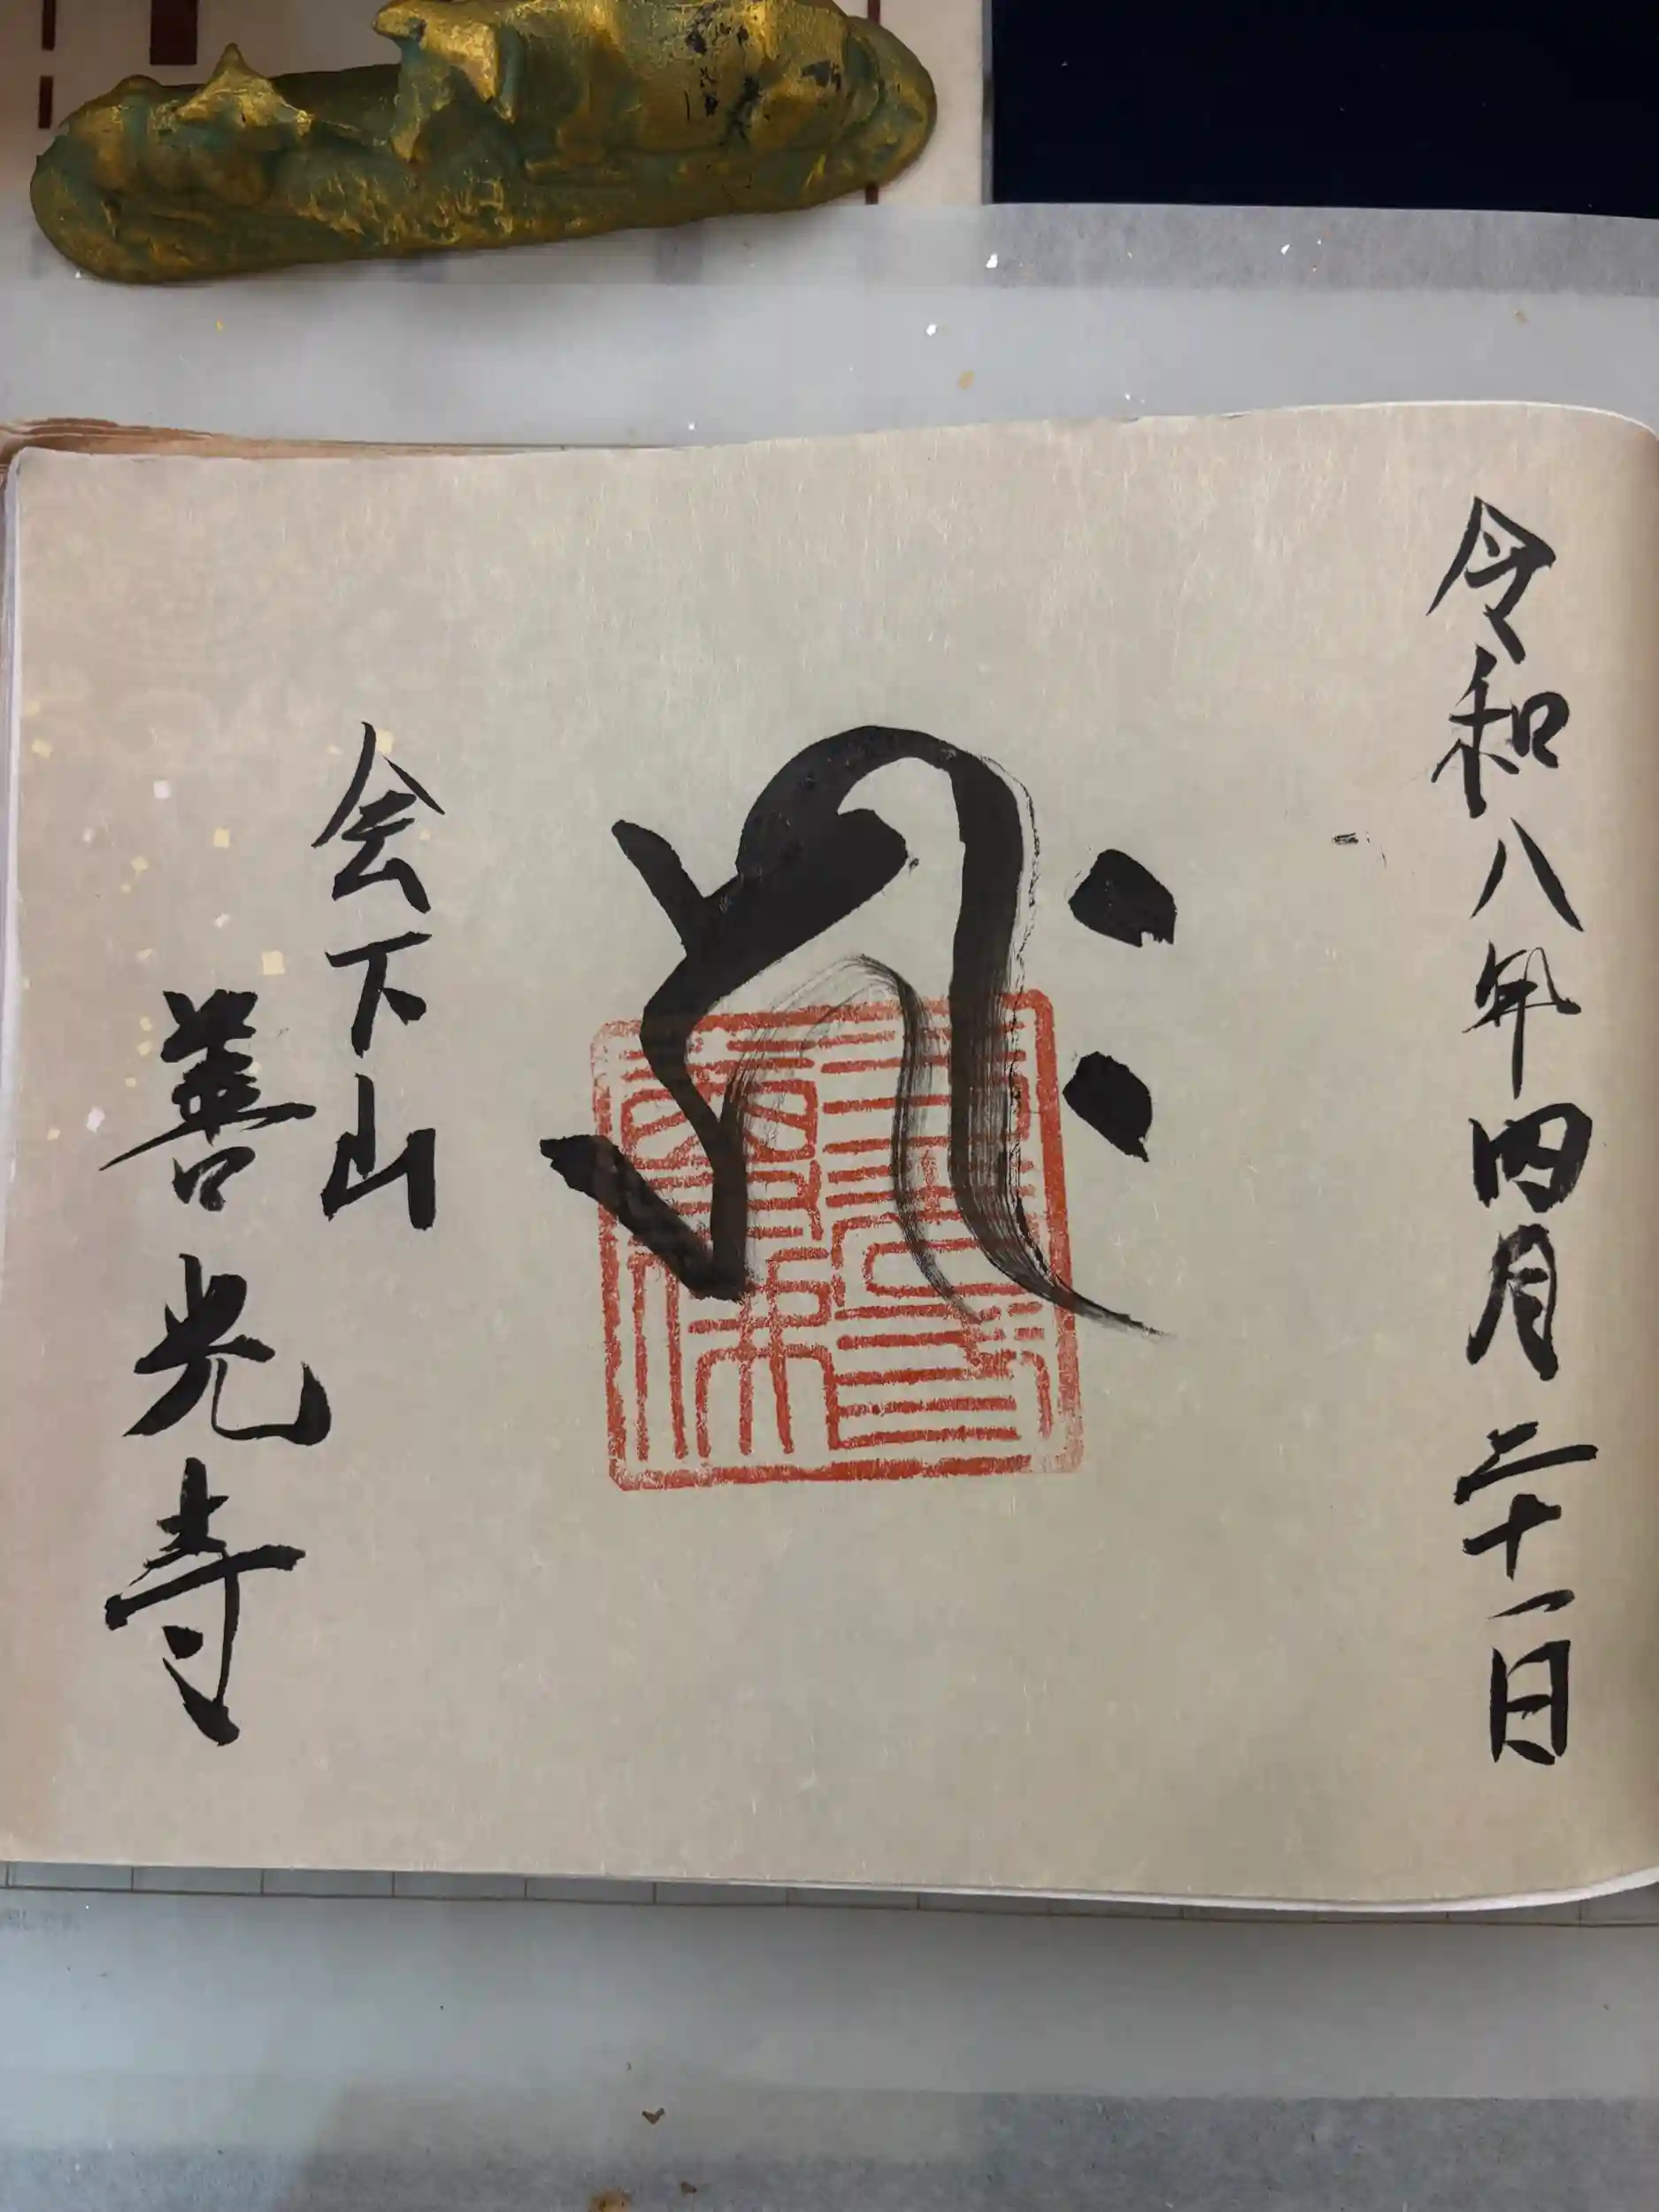 令和八年四月二十一日
𑖮𑖿𑖨𑖱𑖾
会下山
善光寺